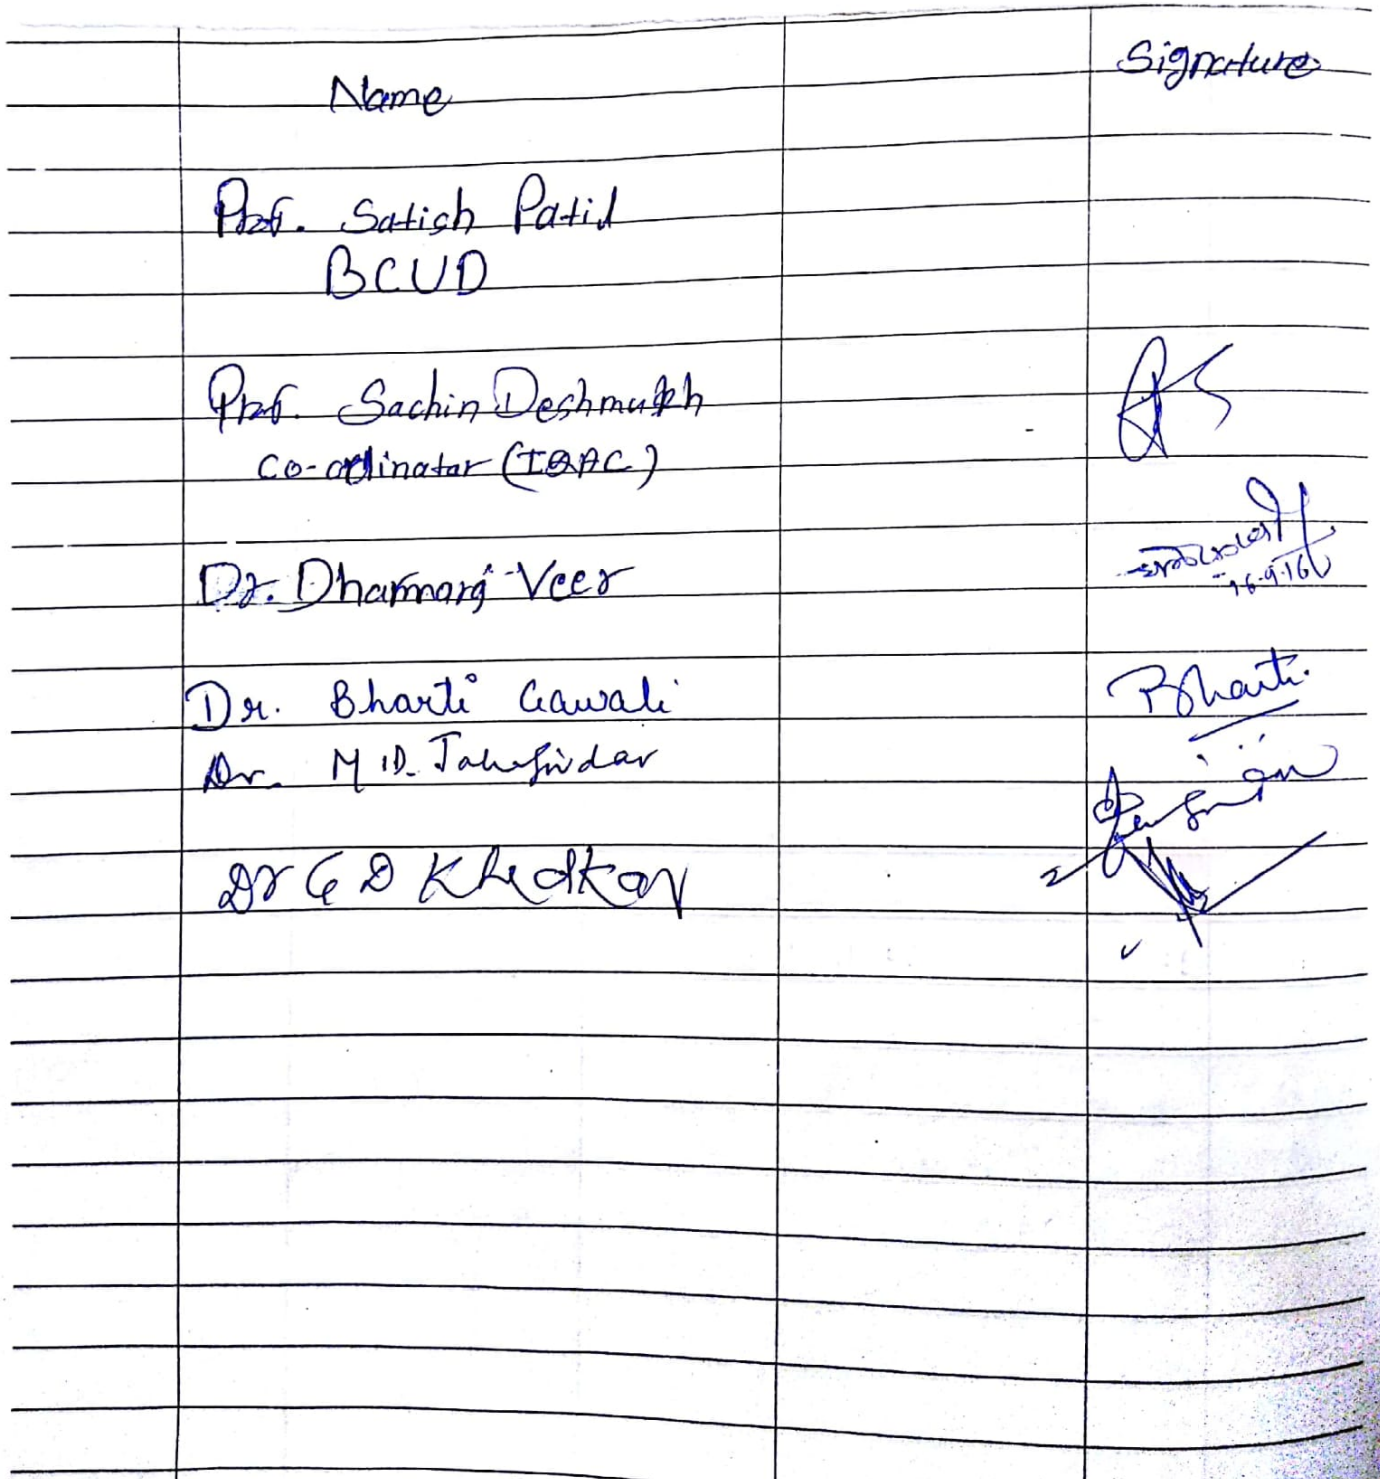 Name Signature
Prof. Satish Patil
BCUD
Prof. Sachin Deshmukh
Co-ordinator (IQAC)
Dr. Dharmaraj Veer
16.9.16
Dr. Bharti Gawali Bharti.
Dr. M.D.
Dr G D Khedkar